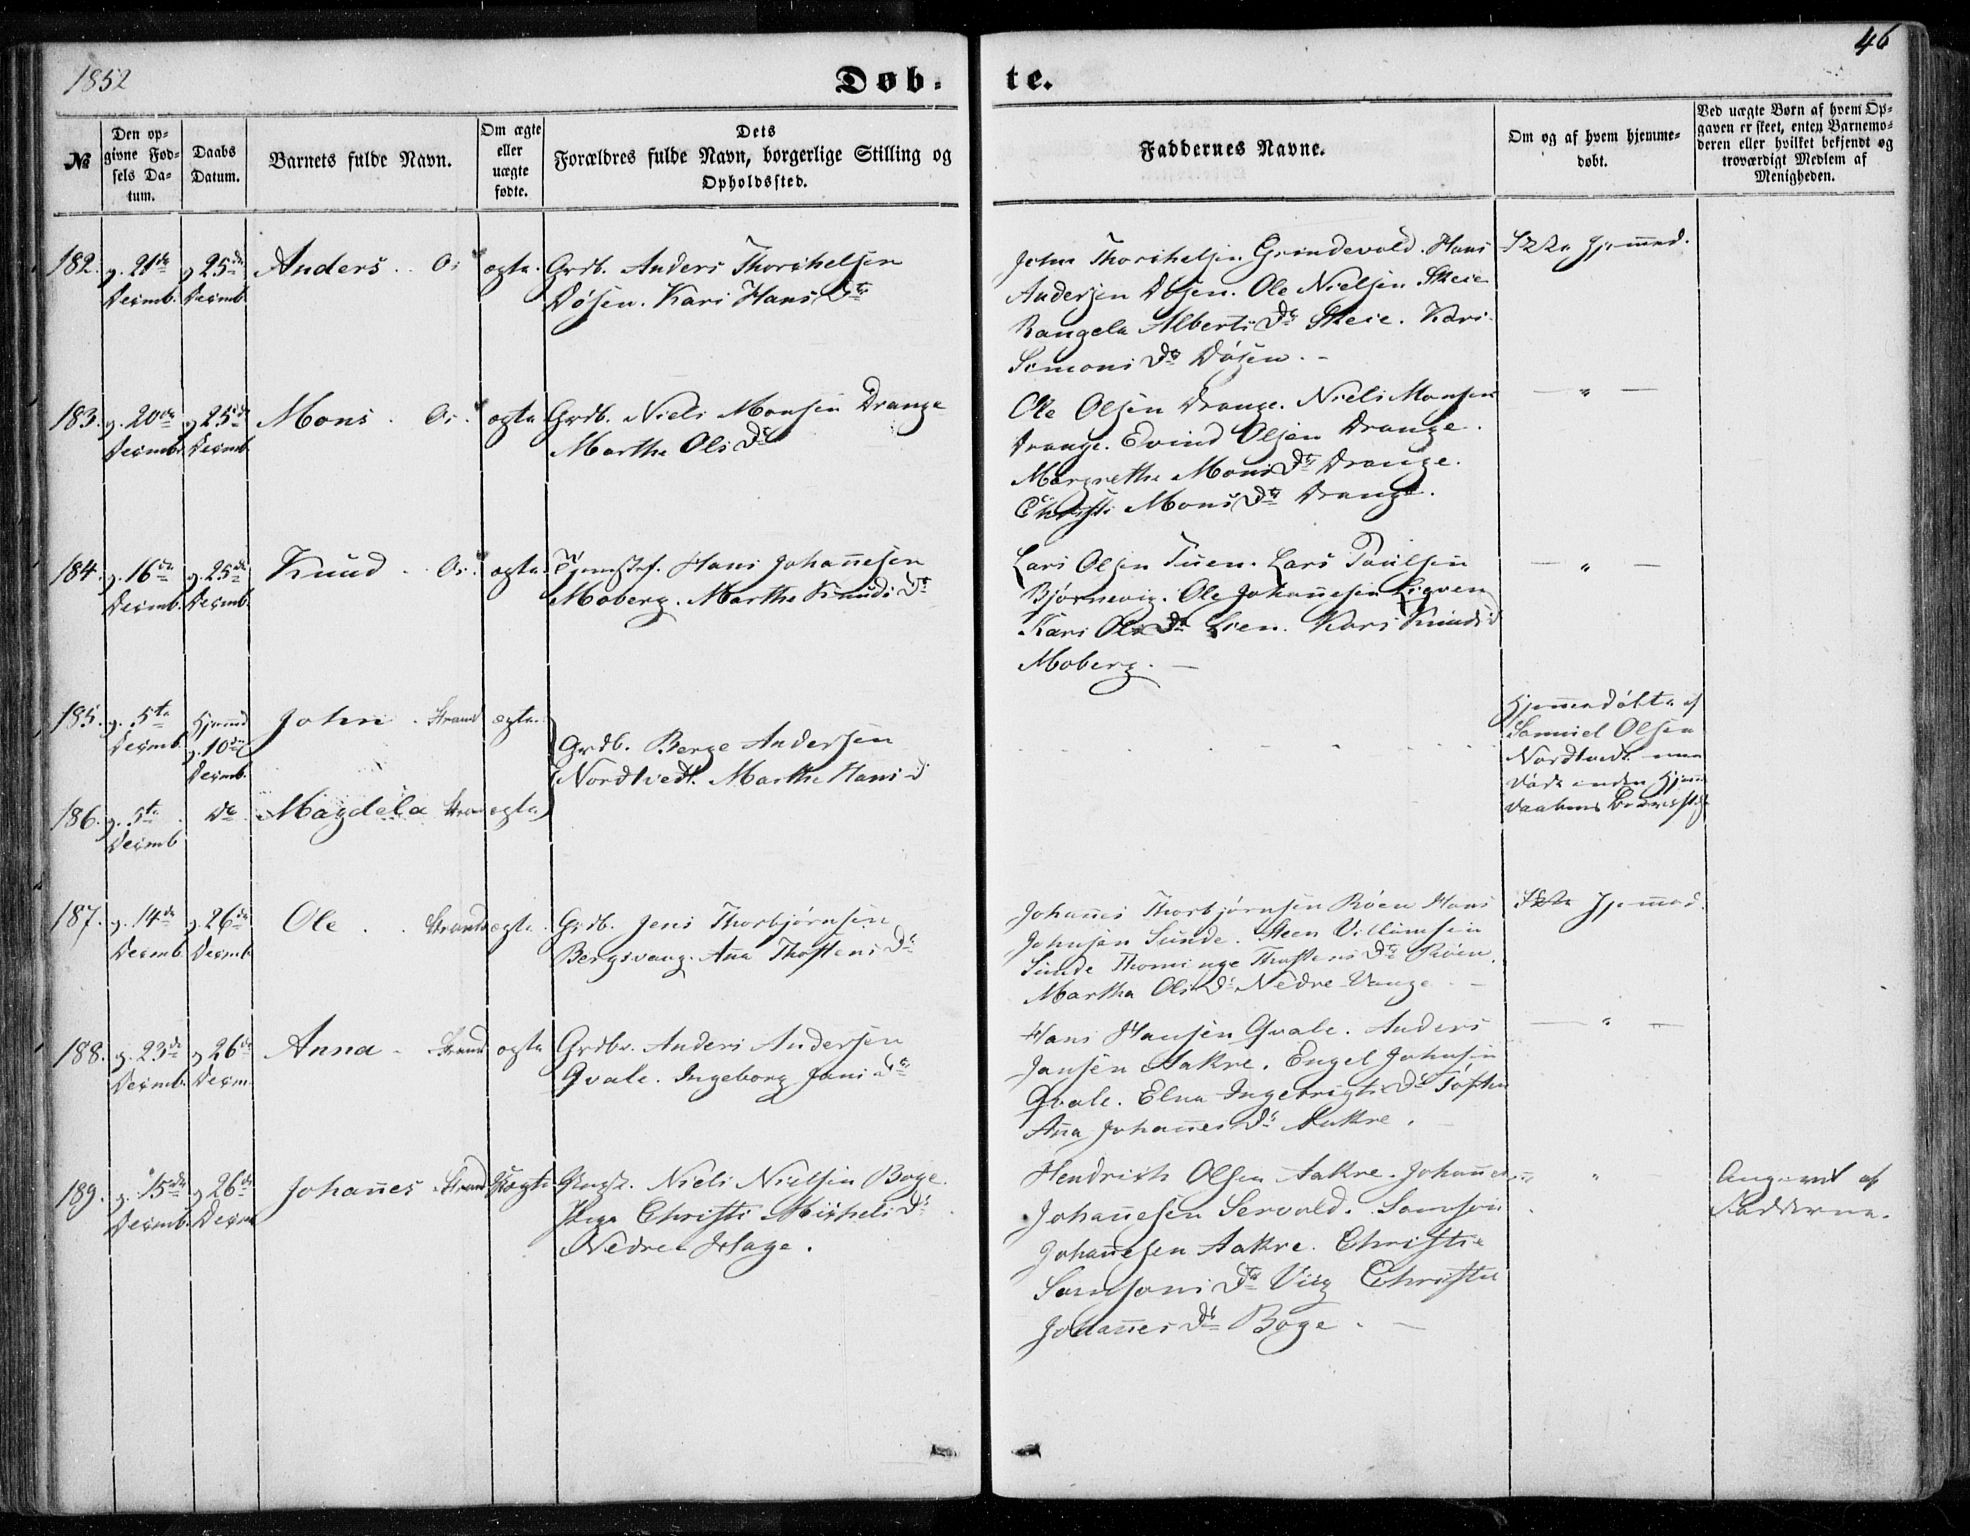 1852
Døb-
te.
46
№
Den op-
givne Fød-
sels Da-
tum.
Daabs
Datum.
Barnets fulde Navn.
Om ægte
eller
uægte
fødte.
Dets
Forældres fulde Navn, borgerlige Stilling og
Opholdssted.
Faddernes Navne.
Om og af hvem hjemme-
døbt.
Ved uægte Børn af hvem Op-
gaven er skeet, enten Barnemo-
deren eller hvilket bekjendt og
troværdigt Medlem af
Menigheden.
182. 21de Decmb. 25de Decmb. Anders. Os ægte. Grdb. Anders Thorkelsen
Døsen. Kari Hans Dtr
John Thorkelsen Grindevold. Hans
Andersen Døsen. Ole Nielsen Skeie
Rangela Alberts Dr Skeie. Kari
Simons Dr Døsen. -
Ikke hjemmed.
183. 20de Decmb. 25de Decmb. Mons. Os. ægte Grdb. Niels Monsen Drange
Marthe Ols Dr
Ole Olsen Drange. Niels Monsen
Drange. Evind Olsen Drange.
Margrethe Mons Dr Drange.
Christi Mons Dr Drange.
— " —
184. 16de Decmb. 25de Decmb. Knud. Os. ægte. Hans Johannesen
Moberg. Marthe Knuds Dr
Lars Olsen Tuen. Lars Paulsen
Bjørnevig. Ole Johannesen
Kari Ols Dr Lien. Kari Knuds d
Moberg. —
— " —
185. 5te Decmb. Hjemmd 10de Decmb. John. Strand ægte.
Grdb. Berge Andersen
Nordtvedt. Marthe Hans d
Hjemmedøbte af
Samuel Olsen
Nordtvedt men
døde inden
186. 5te Decmb Do Magdela Strand ægte
187. 14de Decmb 26de Decmb. Ole. Strand ægte. Grdb. Jens Thorbjørnsen
Bergsvang. Ana Thostens Dr
Johannes Thorbjørnsen Røen Hans
Johnsen Sunde. Steen Villumsen
Sunde Thostens Dr Røen.
Martha Ols Dr Nedre Vange. -
Ikke hjemmed.
188. 23de Decmb. 26de Decm. Anna. Strand ægte Grdbr. Anders Andersen
Qvale. Ingeborg Jans Dr
Hans Hansen Qvale. Anders
Jansen Aakre. Engel Johnsen
Qvale. Elna Ingebrigts Dr
Ana Johannes Dr Aakre.
— " —
189. 15de Decmb. 26de Decm Johannes Strand Uægte. Niels Nielsen Boge.
Pige Christi Michels Dr
Nedre Hage.
Hendrich Olsen Aakre. Johannes
Johannesen Servold. Samson
Johannesen Aakre. Christie
Samsons Dr Vig Christie
Johannes Dr Boge. —
"
Angivet af
Fadderne.